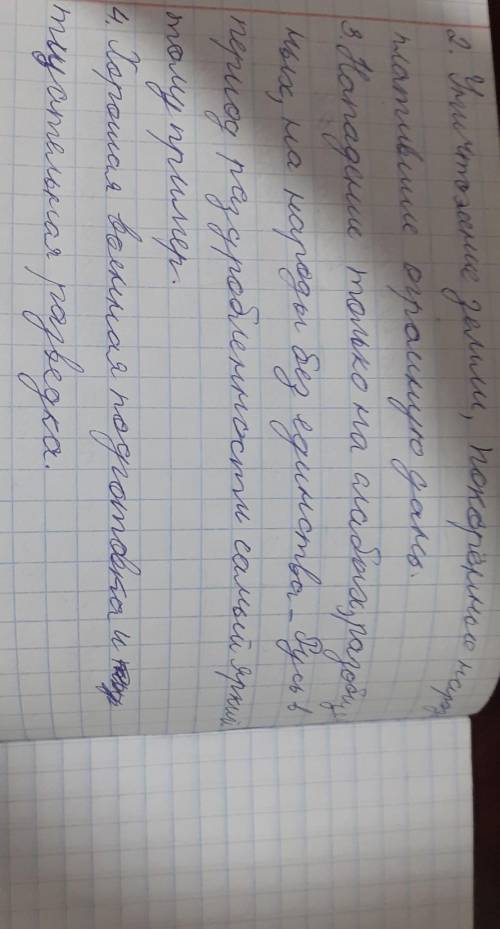 2. Уничтожение земли, покорённые народ
платившие огромную дань.
3. Нападение только на слабых, разоби
мых, на народы без единства - Русь в
период раздробленности самый яркий
тому пример.
4. Хорошая военная подготовка и
тщательная разведка.